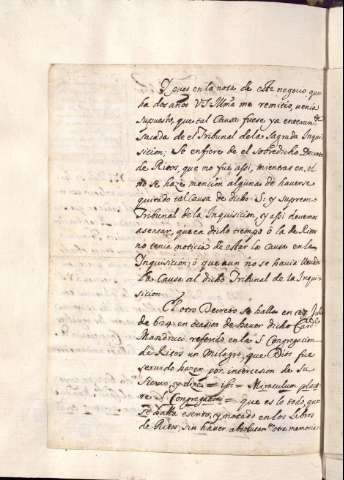 Y pues en la nota de este negocio que
ha dos años V.S. Illma me remitio, venia
supuesto, que tal Causa fuese ya entonces
sacada de el Tribunal de la Sagrada Inqui
sicion; Se enfiere de el sobredicho Decreto
de Ritos, que no fue assi, mientras en el
no se haze mencion alguna de haverse
quitado tal causa de dicho S. y Supremo
Tribunal de la Inquisicion, y assi devemos
assentar, que en dicho tiempo ò la de Ritos
no tenia noticia de estar la Causa en la
Inquisicion; ò que aun no se havia
Causa al dicho Tribunal de la Inqui
sicion.
El otro Decreto se halla en
de 624. en de haver dicho Card.
referido en la S. Congregacion
de Ritos un Milagro, que Dios fue
servido hazer por intercesion de su
Siervo, y dize = Miraculum
S. Congregationi = que es lo todo, que
se halla escrito, y notado en los Libros
de Ritos, sin haver otra memoria